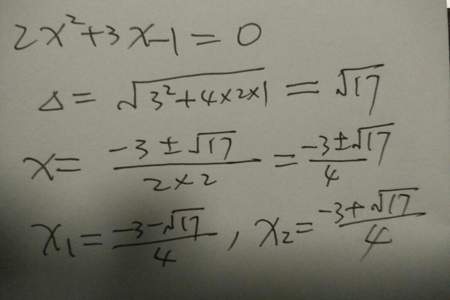 2x²+3x-1=0
Δ=√(3²+4×2×1)=√17
x=(-3±√17)/(2×2)=(-3±√17)/4
x₁=(-3-√17)/4, x₂=(-3+√17)/4